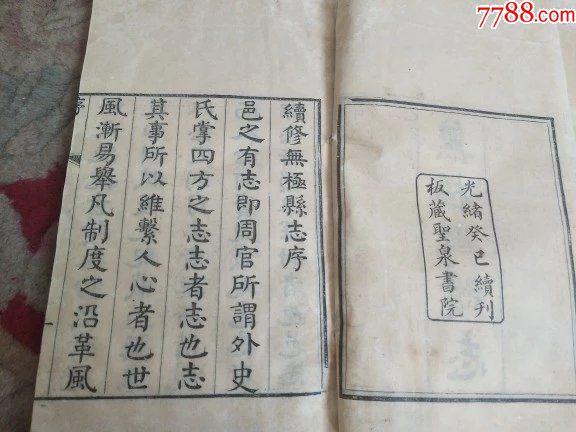 7788.com
光緒癸巳續刊
板藏聖泉書院
續修無極縣志序
邑之有志即周官所謂外史
氏掌四方之志志者志也志
其事所以維繫人心者也世
風漸易舉凡制度之沿革風
序